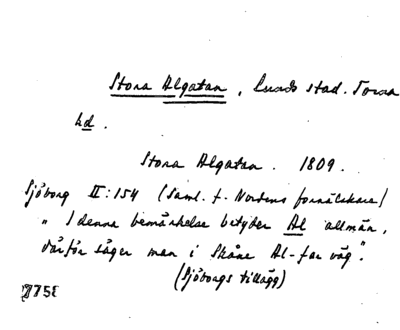 Stora Algatan, Lunds stad. Torna
hd.
Stora Algatan. 1809.
Sjöborg II:154 (Saml. f. Nordens fornälskare)
"I denna bemärkelse betyder Al allmän,
därför säger man i Skåne Al-far väg".
(Sjöborgs tillägg)